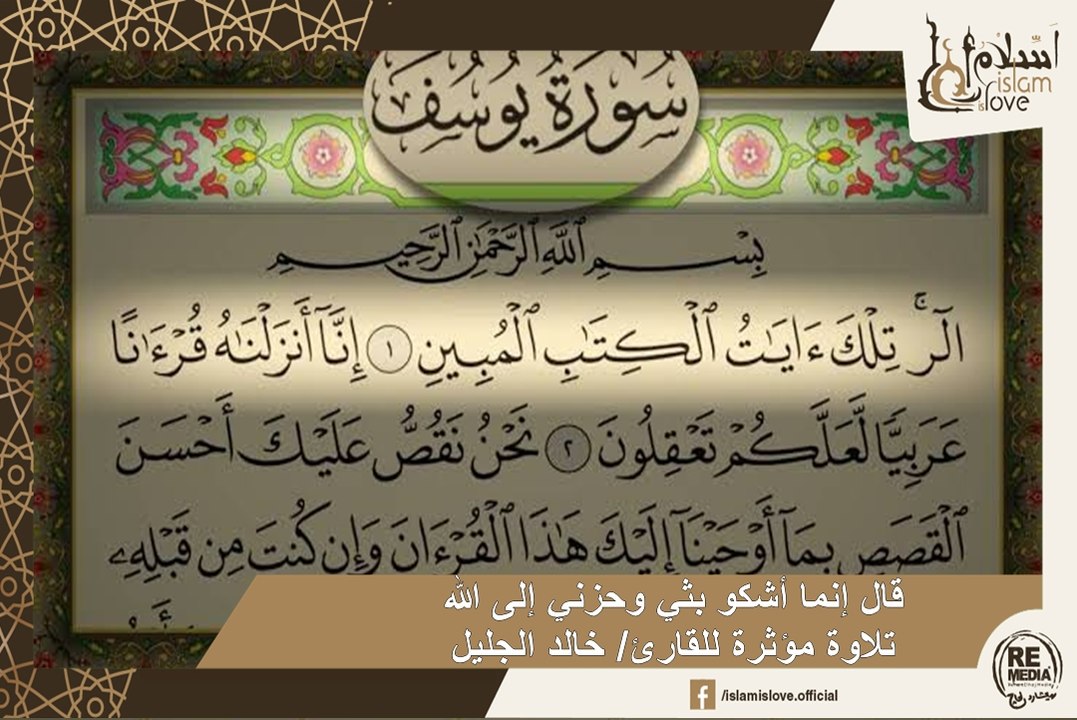 اسلام
islam
is
love
سُورَةُ يُوسُفَ
بِسْمِ ٱللَّهِ ٱلرَّحْمَٰنِ ٱلرَّحِيمِ
الٓرۚ تِلْكَ ءَايَٰتُ ٱلْكِتَٰبِ ٱلْمُبِينِ ١ إِنَّآ أَنزَلْنَٰهُ قُرْءَٰنًا
عَرَبِيًّا لَّعَلَّكُمْ تَعْقِلُونَ ٢ نَحْنُ نَقُصُّ عَلَيْكَ أَحْسَنَ
ٱلْقَصَصِ بِمَآ أَوْحَيْنَآ إِلَيْكَ هَٰذَا ٱلْقُرْءَانَ وَإِن كُنتَ مِن قَبْلِهِۦ
قال إنما أشكو بثي وحزني إلى الله
تلاوة مؤثرة للقارئ/ خالد الجليل
f /islamislove.official
RE
MEDIA